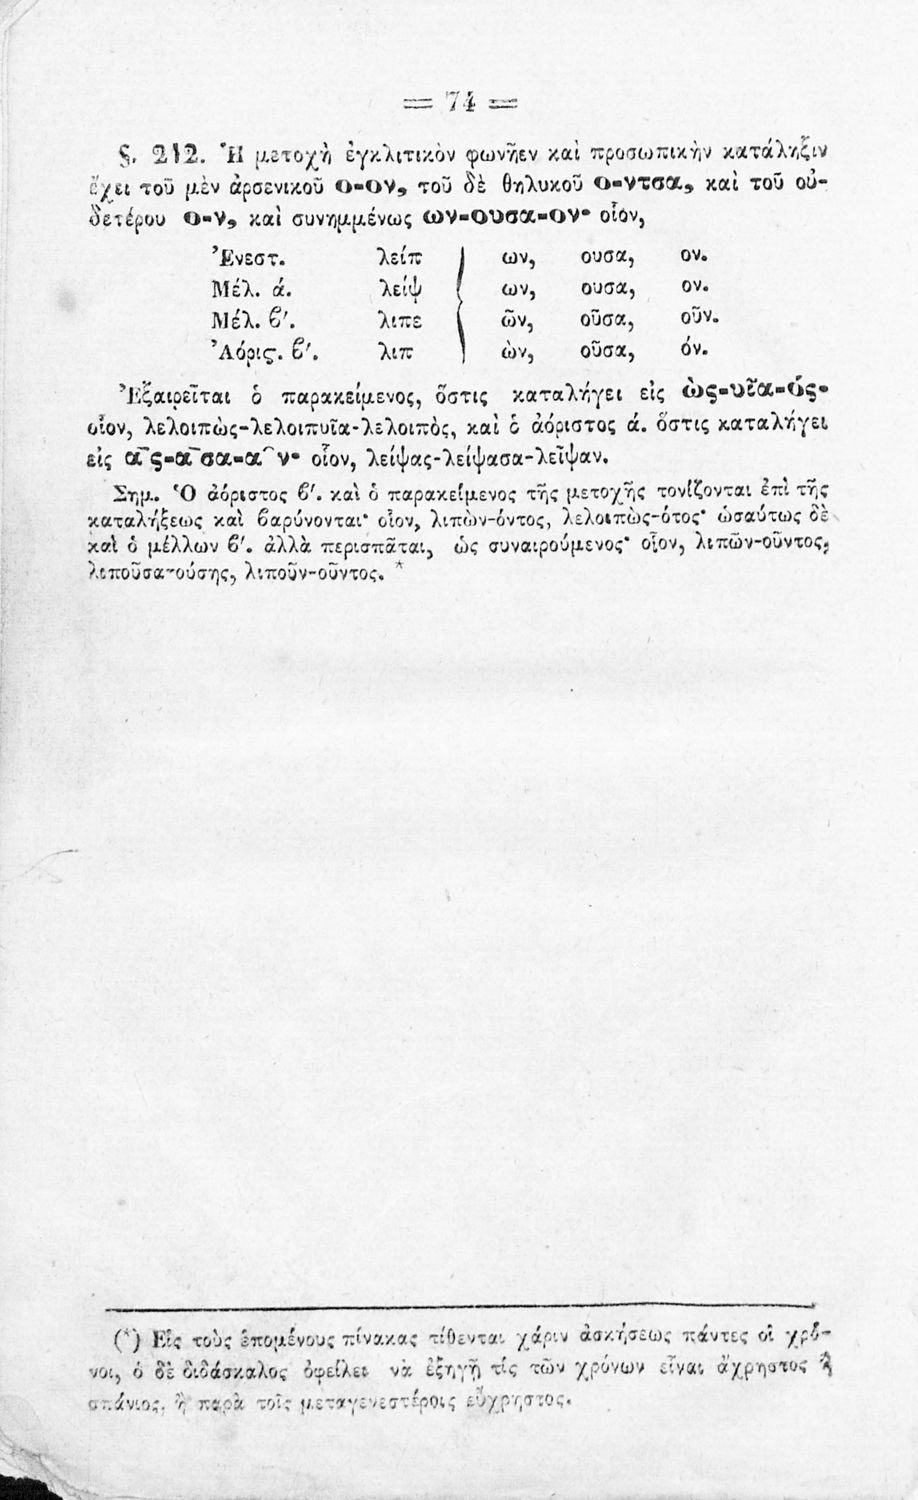 = 74 =
§. 212. Ἡ μετοχὴ ἐγκλιτικὸν φωνῆεν καὶ προσωπικὴν κατάληξιν
ἔχει τοῦ μὲν ἀρσενικοῦ ο-ον, τοῦ δὲ θηλυκοῦ ο-ντσα, καὶ τοῦ οὐ-
δετέρου ο-ν, καὶ συνημμένως ων-ουσα-ον· οἷον,
Ἐνεστ. λείπ ων, ουσα, ον.
Μέλ. ά. λείψ ων, ουσα, ον.
Μέλ. ϐ′. λιπε ῶν, οῦσα, οῦν.
Ἀόρις. ϐ′. λιπ ὼν, οῦσα, όν.
Ἐξαιρεῖται ὁ παρακείμενος, ὅστις καταλήγει εἰς ὼς-υῖα-ός·
οἷον, λελοιπὼς-λελοιπυῖα-λελοιπὸς, καὶ ὁ ἀόριστος ά. ὅστις καταλήγει
εἰς ᾱς-ᾱσα-ᾰν· οἷον, λείψας-λείψασα-λεῖψαν.
Σημ. Ὁ ἀόριστος ϐ′. καὶ ὁ παρακείμενος τῆς μετοχῆς τονίζονται ἐπὶ τῆς
καταλήξεως καὶ ϐαρύνονται· οἷον, λιπὼν-όντος, λελοιπὼς-ότος· ὡσαύτως δὲ
καὶ ὁ μέλλων ϐ′. ἀλλὰ περισπᾶται, ὡς συναιρούμενος· οἷον, λιπῶν-οῦντος,
λιποῦσα-ούσης, λιποῦν-οῦντος. *
(*) Εἰς τοὺς ἑπομένους πίνακας τίθενται χάριν ἀσκήσεως πάντες οἱ χρό-
νοι, ὁ δὲ διδάσκαλος ὀφείλει νὰ ἐξηγῇ τίς τῶν χρόνων εἶναι ἄχρηστος ἢ
σπάνιος, ἢ παρὰ τοῖς μεταγενεστέροις εὔχρηστος.